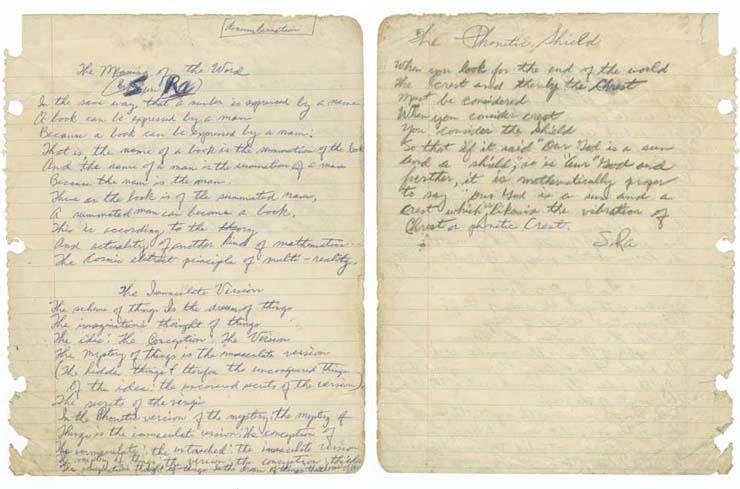 The Meaning of the Word
S Ra
In the same way that a number is expressed by a name
A book can be expressed by a man
Because a book can be expressed by a name.
That is, the name of a book is the summation of the book
And the name of a man is the summation of a man
Because the name is the man.
Thus as the book is of the summated name,
A summated man can become a book.
This is according to the theory
And actuality of another kind of mathematics...
The Kosmic abstract principle of multi-reality.
The Immaculate Version
The scheme of things Is the dream of things
The imagination's thought of things
The idea: The Conception: The Version
The mystery of things is the immaculate version
(The hidden things & therefore the unconquered things
Of the idea: the uncovered secrets of the version)
The secrets of the
In the Phonetic version of the mystery, the mystery of
Things is the immaculate version: the conception of
The immaculate: the untouched: the immaculate version
The mystery of things: the version: the conception: the idea
The thought of things is the dream of things
The Phonetic Shield
When you look for the end of the world
The crest and thereby the Chrest
Must be considered
When you consider crest
You consider the shield
So that if it said "Our God is a sun
and a shield," so is "Our" God and
further, it is mathematically proper
to say "Our God is a sun and a
Crest which" likewise the vibration of
Christ or phonetic Crest.
S. Ra